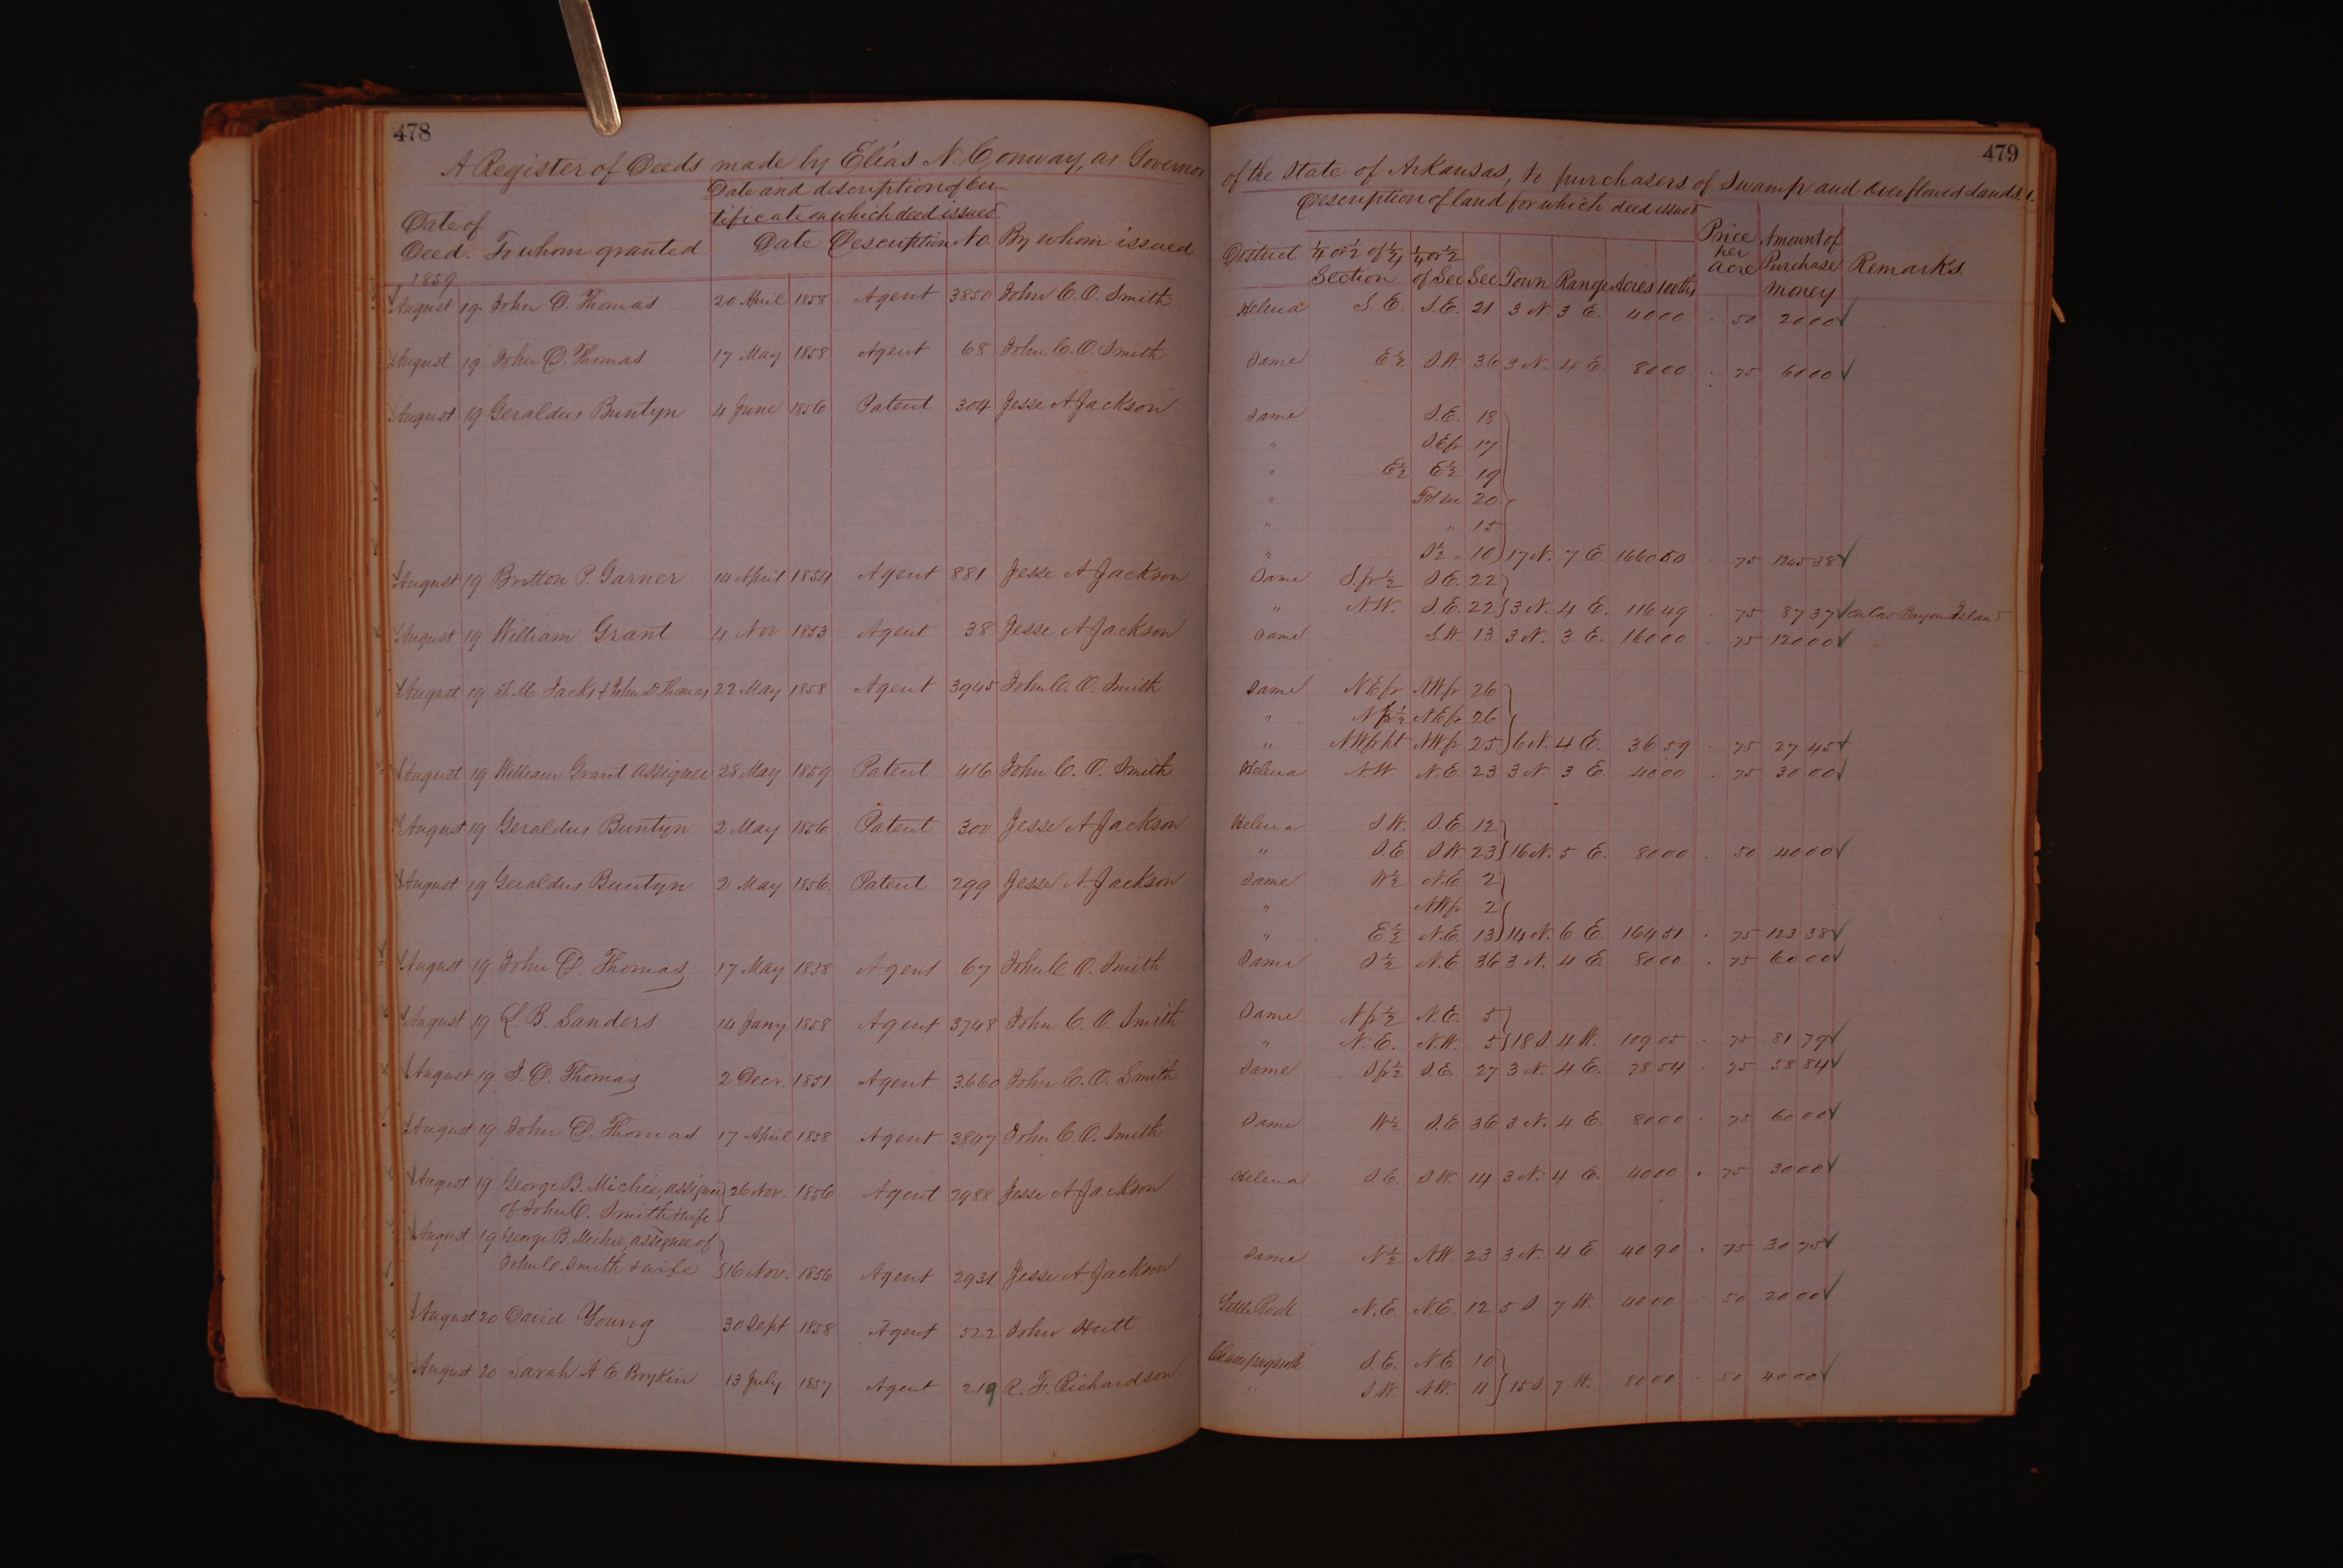 478
A Register of Deeds made by Elias N. Conway, as Governor
Date and description of cer-
tificate on which deed issued
Date of
Deed. To whom granted Date Description No. By whom issued
1859
August 19. John D. Thomas 20 April 1858 Agent 3850 John C. O. Smith
August 19 John D. Thomas 17 May 1858 Agent 68 John C. O. Smith
August 19 Geraldus Buntyn 4 June 1856 Patent 304 Jesse A Jackson
August 19 Britton P. Garner 14 April 1854 Agent 881 Jesse A Jackson
August 19 William Grant 4 Nov 1853 Agent 38 Jesse A Jackson
August 19 T. M. Jacks & John D Thomas 22 May 1858 Agent 3945 John C. O. Smith
August 19 William Grant assignee 28 May 1859 Patent 416 John C. O. Smith
August 19 Geraldus Buntyn 2 May 1856 Patent 300 Jesse A Jackson
August 19 Geraldus Buntyn 2 May 1856. Patent 299 Jesse A Jackson
August 19 John D. Thomas 17 May 1858 Agent 67 John C O. Smith
August 19 L. B. Sanders 14 Jany 1858 Agent 3748 John C. O. Smith
August 19 J. D. Thomas 2 Decr. 1851 Agent 3.660 John C. O. Smith
August 19 John D. Thomas 17 April 1858 Agent 3847 John C O. Smith
August 19 George B. Michie, assignee 26 Nov. 1856 Agent 2988 Jesse A Jackson
of John C. Smith & wife
August 19 George B. Michie, assignee of
John C. Smith & wife 16 Nov. 1856 Agent 2931 Jesse A. Jackson
August 20 David Young 30 Sept 1858 Agent 522 John Hutt
August 20 Sarah A. E. Boykin 13 July 1857 Agent 219 R. F. Richardson
479
of the State of Arkansas, to purchasers of Swamp and Overflowed Lands.
Description of land for which deed issued
District 1/4 or 1/2 of 1/4 1/4 or 1/2 Price Amount of
Section of Sec Sec Town Range Acres 100ths per acre Purchase money Remarks
Helena S. E. S. E. 21 3 N. 3 E. 40 00 . 50 20 00 ✓
Same E ½ S.W. 36 3 N. 4 E. 80 00 . 75 60 00 ✓
Same S.E. 18
" S.E fr 17
" E ½ E ½ 19
" 20
" " 15
" S ½ " 10 17 N. 7 E. 1660 50 . 75 1245 38 ✓
Same S. fr ½ S E. 22
" N W. S. E. 22 3 N. 4 E. 116 49 . 75 87 37 ✓
Same S.W. 13 3 N. 3 E. 160 00 . 75 120 00 ✓
Same N E fr N W fr 26
" N fr ½ N E fr 26
" N W fr N W fr 25 6 N. 4 E. 36 59 . 75 27 45 ✓
Helena N W. N. E. 23 3 N. 3 E. 40 00 . 75 30 00 ✓
Helena S W. S. E. 12
" S. E. S W. 23 16 N. 5 E. 80 00 . 50 40 00 ✓
Same W ½ N. E 2
" N W fr 2
" E ½ N. E. 13 14 N. 6 E. 164 51 . 75 123 38 ✓
Same S ½ N. E 36 3 N. 4 E. 80 00 . 75 60 00 ✓
Same N fr ½ N. E. 5
" N. E. N.W. 5 18 S. 4 W. 109 05 . 75 81 79 ✓
Same S fr ½ S. E. 27 3 N. 4 E. 78 54 . 75 58 84 ✓
Same W ½ S. E 36 3 N. 4 E. 80 00 . 75 60 00 ✓
Helena S E. S W. 14 3 N. 4 E. 40 00 . 75 30 00 ✓
Same N ½ N W. 23 3 N. 4 E 40 90 . 75 30 75 ✓
Little Rock N. E. N. E. 12 5 S. 7 W. 40 00 . 50 20 00 ✓
Champagnolle S. E. N E 10
" S W N W. 11 15 S. 7 W. 80 00 . 50 40 00 ✓